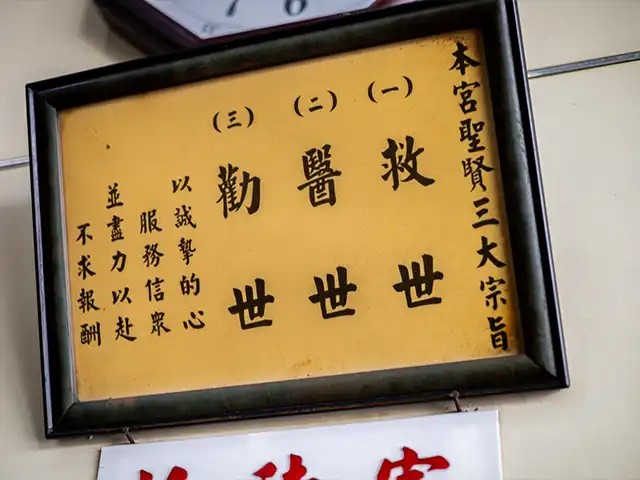 本宮聖賢三大宗旨
(一)救世
(二)醫世
(三)勸世
以誠摯的心
服務信眾
並盡力以赴
不求報酬
7 6